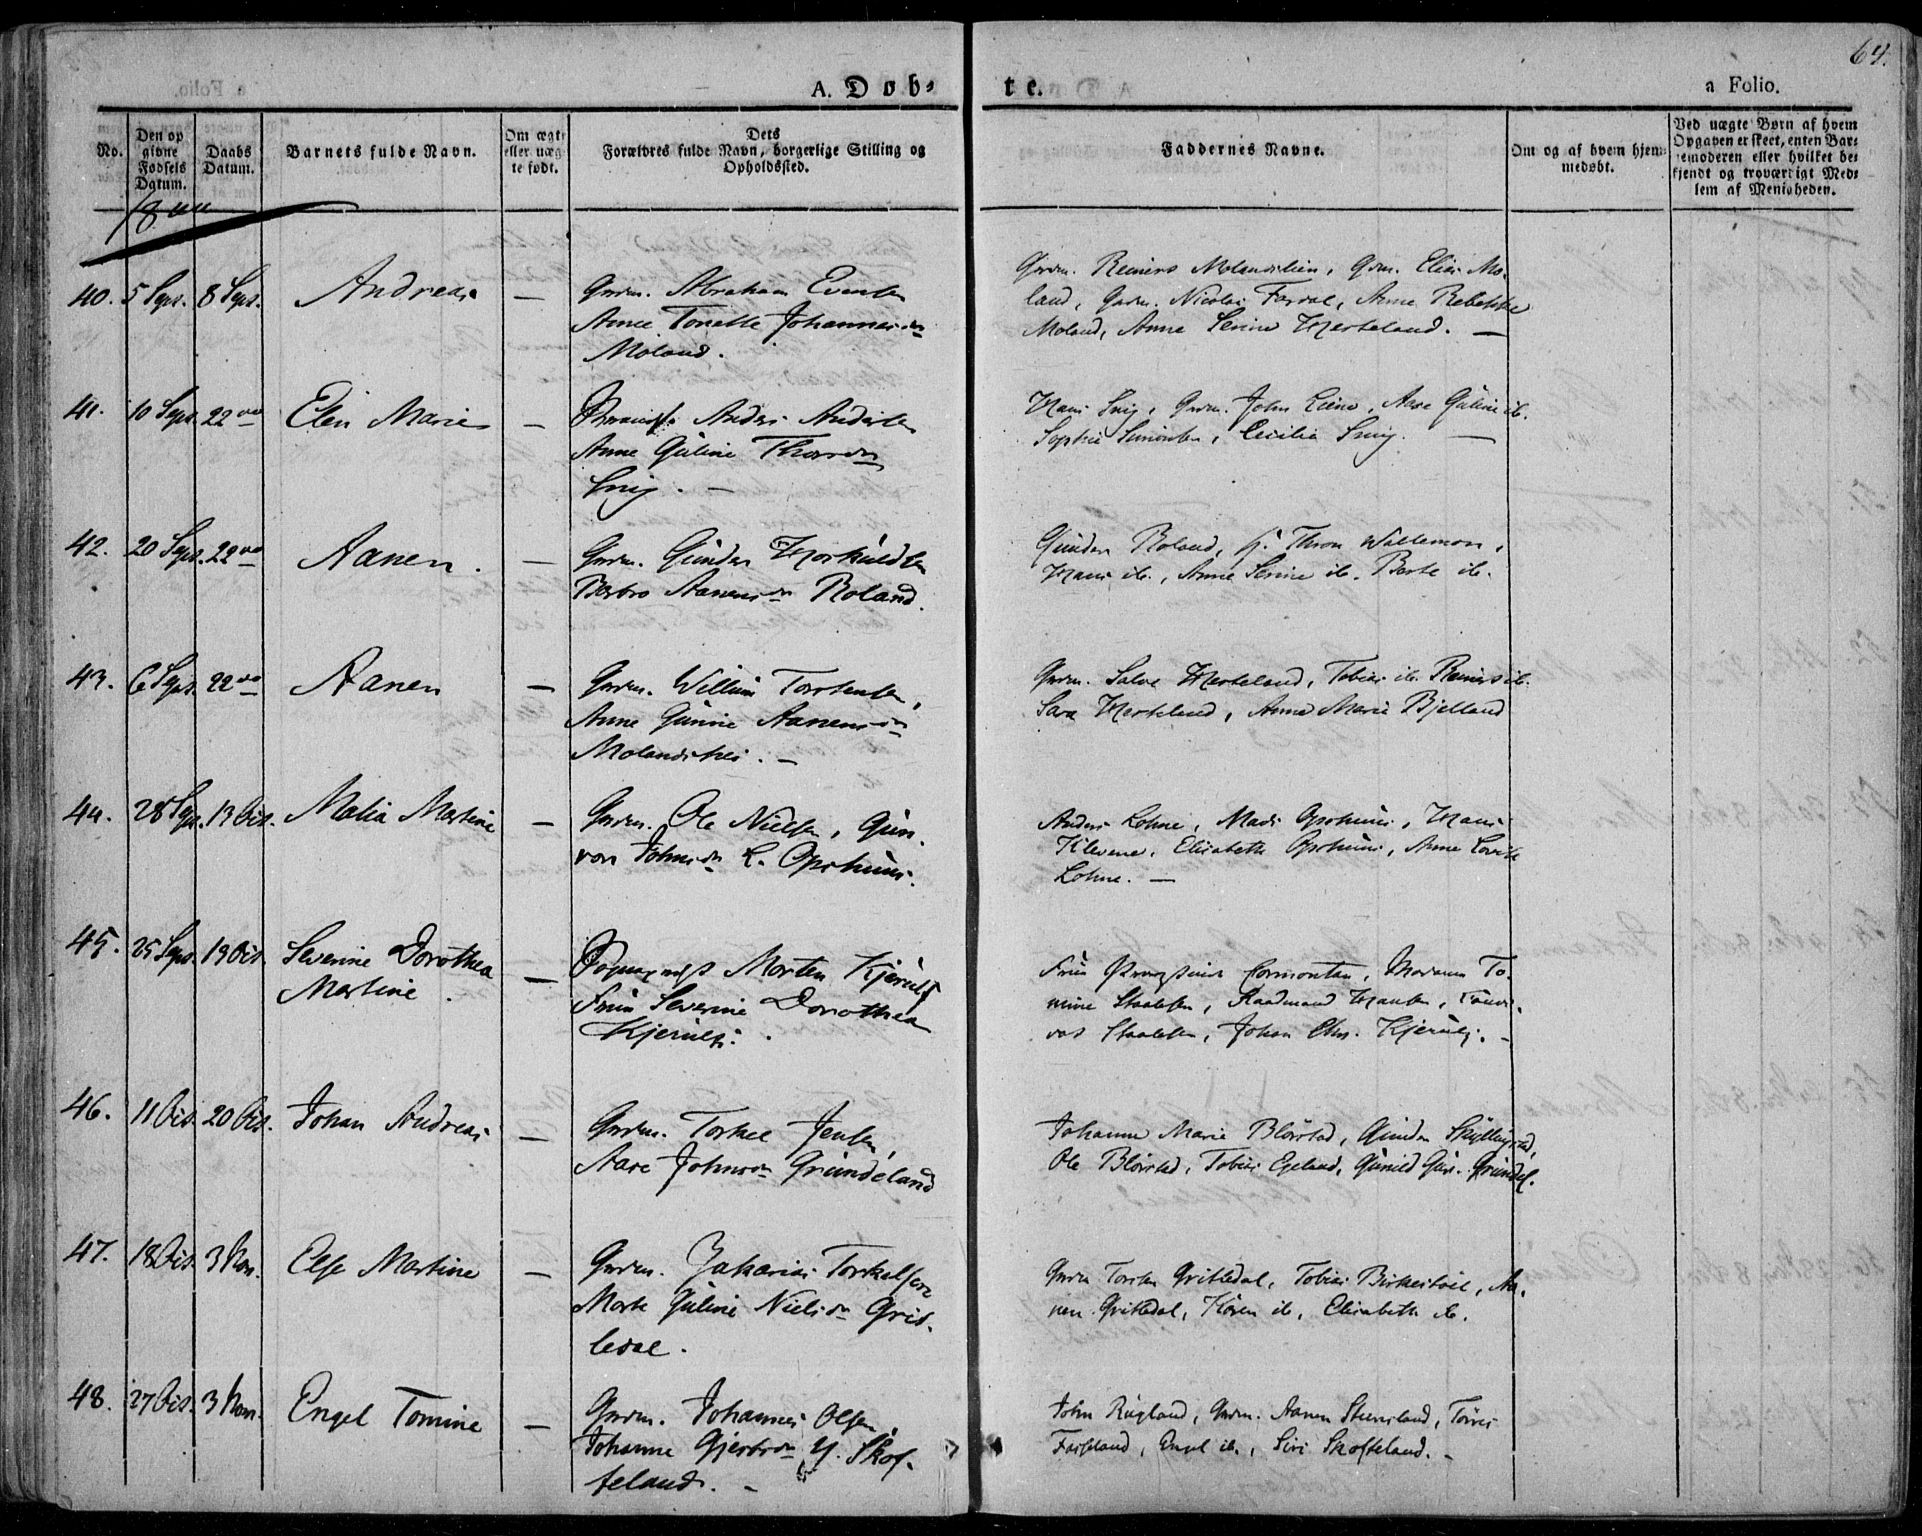 64.
A. Døb-
te.
a Folio.
No.
Den op
givne
Fødsels
Datum.
Daabs
Datum.
Barnets fulde Navn.
Om ægte
eller uæg-
te født.
Dets
Forældres fulde Navn, borgerlige Stilling og
Opholdssted.
Faddernes Navne.
Om og af hvem hjem-
medøbt.
Ved uægte Børn af hvem
Opgaven er skeet, enten Bar-
nemoderen eller hvilket be-
kjendt og troværdigt Med-
lem af Menigheden.
40. 5 Sept. 8 Sept. Andreas — Gmdm. Abraham Evensen
Anne Tonette Johannesdr
Moland.
Gmdm. Reiners Molandslien, Gdm. Elias Mo-
land, Gmdm. Nicolai Fardal, Anne Rebekke
Moland, Anne Serine Herkeland. —
41. 10 Sept. 22de Elen Marie — Anders Andersen
Anne Guline Thorsdr
Snig. —
Hans Snig, Gmdm. John Liene, Aase Guline ib.
Sophie Simonsen, Cecilia Snig. —
42. 20 Sept. 22de Aanen. — Gmdm. Gunder Horkuldsen
Berbro Aanensdr Roland.
Gunder Roland, Thron Wallemon,
Hans ib., Anne Serine ib. Berte ib.
43. 6 Sept. 22de Aanen — Gmdm. Willum Torstensen,
Anne Gunnie Aanensdr
Molandshei. —
Gmdm. Salve Herkeland, Tobias ib. Reiners ib.
Sara Herkeland, Anne Marie Bjelland
44. 28 Sept. 13 Oct. Malia Martine — Gmdm. Ole Nielsen, Gun-
vor Johnsdr L. Opshuus.
Anders Lohne, Mads Opshuus, Hans
Klevene, Elisabeth Opshuus, Anne
Lohne. —
45. 25 Sept. 19 Oct. Severine Dorothea
Martine. — Morten Kjerulf
Fruu Severine Dorothea
Kjerulf.
Fruu Cormontan, Madame To-
mine Staalesen, Raadmand Hansen,
Staalesen, Johan Chr. Kjerulf. —
46. 11 Oct. 20 Oct. Johan Andreas — Gmdm. Torkel Jensen,
Aase Johnsdr Grundeland
Johanne Marie Blørstad, Gunder Skyllingstad,
Ole Blørstad, Tobias Egeland, Gunild Grundel.
47. 18 Oct. 3 Nov. Else Martine — Gmdm. Zakarias Torkelsen
Marte Guline Nielsdr Gris-
ledal.
Gmdm Torsten Grisledal, Tobias Birkestøl, Aa-
nen Grisledal, Karen ib, Elisabeth ib.
48. 27 Oct. 3 Nov. Engel Tomine — Gmdm. Johannes Olsen,
Johanne Gjerbrdr Y. Skof-
teland. —
John Rugland, Gmdm. Aanen Steensland, Tørres
Farstland, Engel ib., Siri Skofteland. —